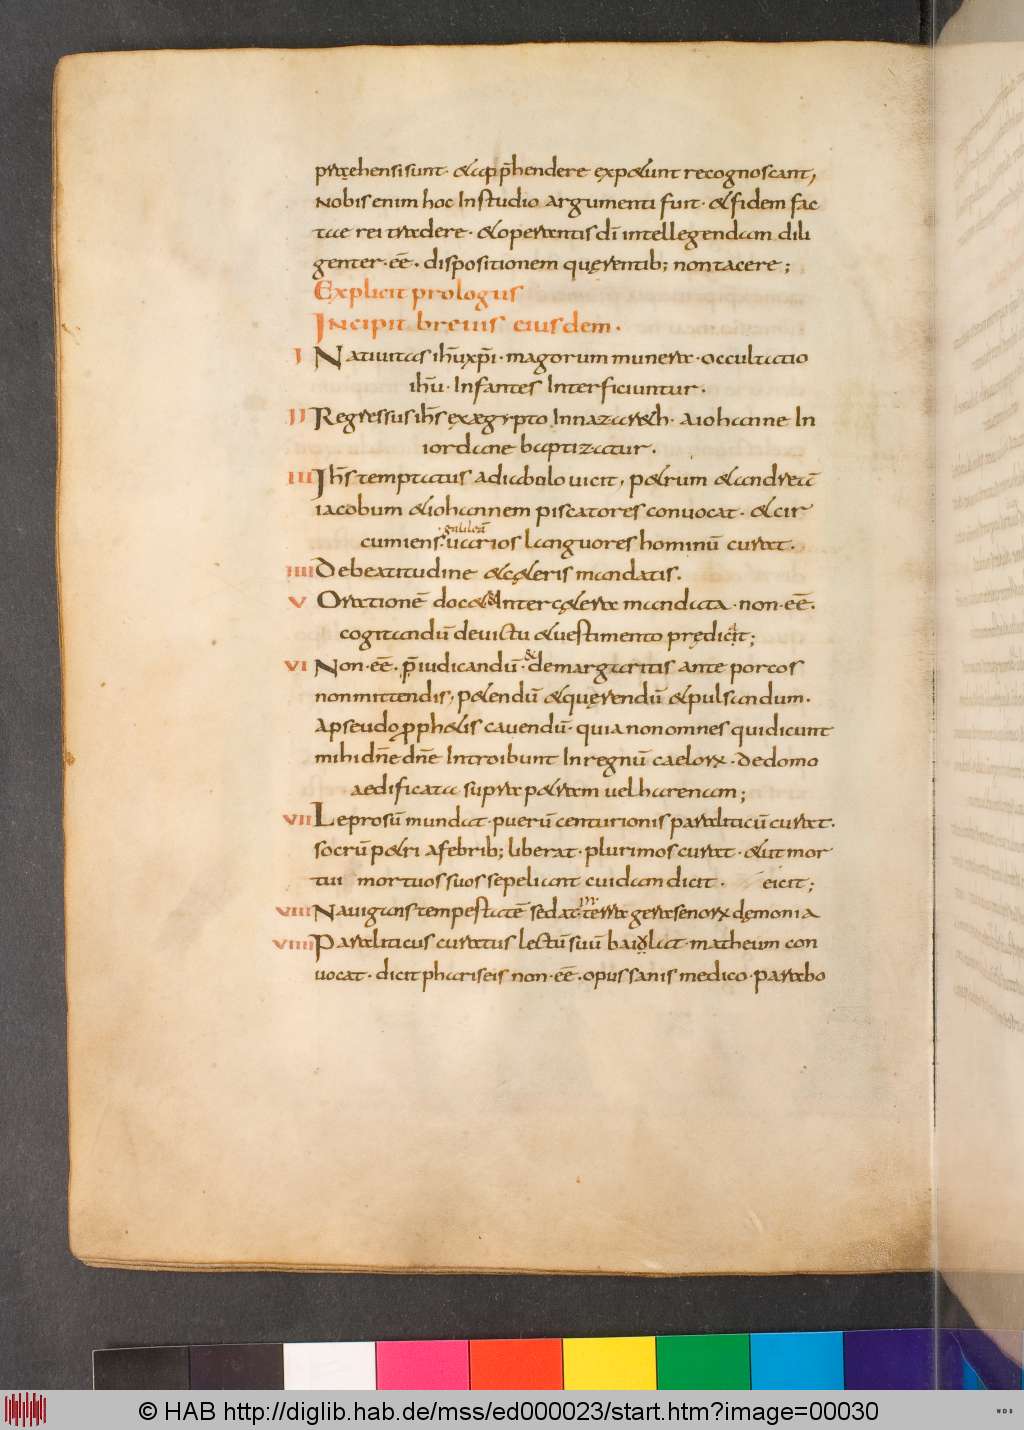 praehensi sunt· & app̄hendere expetunt recognoscant,
Nobis enim hoc In studio argumenti fuit· & fidem fac
tae rei tradere· & operantis dī intellegendam dili
genter·eē· dispositionem quęrentib; non tacere;
Explicit prologus
Incipit breuis eiusdem·
I Natiuitas ih̄u xp̄i· magorum munera· occultatio
ih̄u· Infantes Interficiuntur·
II Regressus ih̄s ex ægypto In nazareth· A iohanne In
iordane baptizatur·
III Ih̄s temptatus a diabolo uicit, petrum & andreā
iacobum & iohannem piscatores conuocat· & cir
·galileā
cumiens· uarios languores hominū curat·
IIII De beatitudine & ceteris mandatis·
V Orationē docet & Inter cetera mandata· non·eē·
cogitandū de uictu & uestimento prędicit;
VI Non·eē· p̄iudicandū· & de margaritis ante porcos
non mittendis, petendū & quęrendū & pulsandum·
A pseudo prophetis cauendū· quia non omnes qui dicunt
mihi dn̄e dn̄e Introibunt In regnū caelorꝝ· de domo
aedificata supra petram uel harenam;
VII Leprosū mundat· puerū centurionis paraliticū curat·
socrū petri a febrib; liberat· plurimos curat· & ut mor
tui mortuos suos sepeliant cuidam dicit· eicit;
VIII Nauigans tempestatē sedat· in terra gerasenorꝝ dęmonia
VIIII Paraliticus curatus lectū suū baiolat· matheum con
uocat· dicit phariseis non·eē· opus sanis medico· parabo
© HAB http://diglib.hab.de/mss/ed000023/start.htm?image=00030